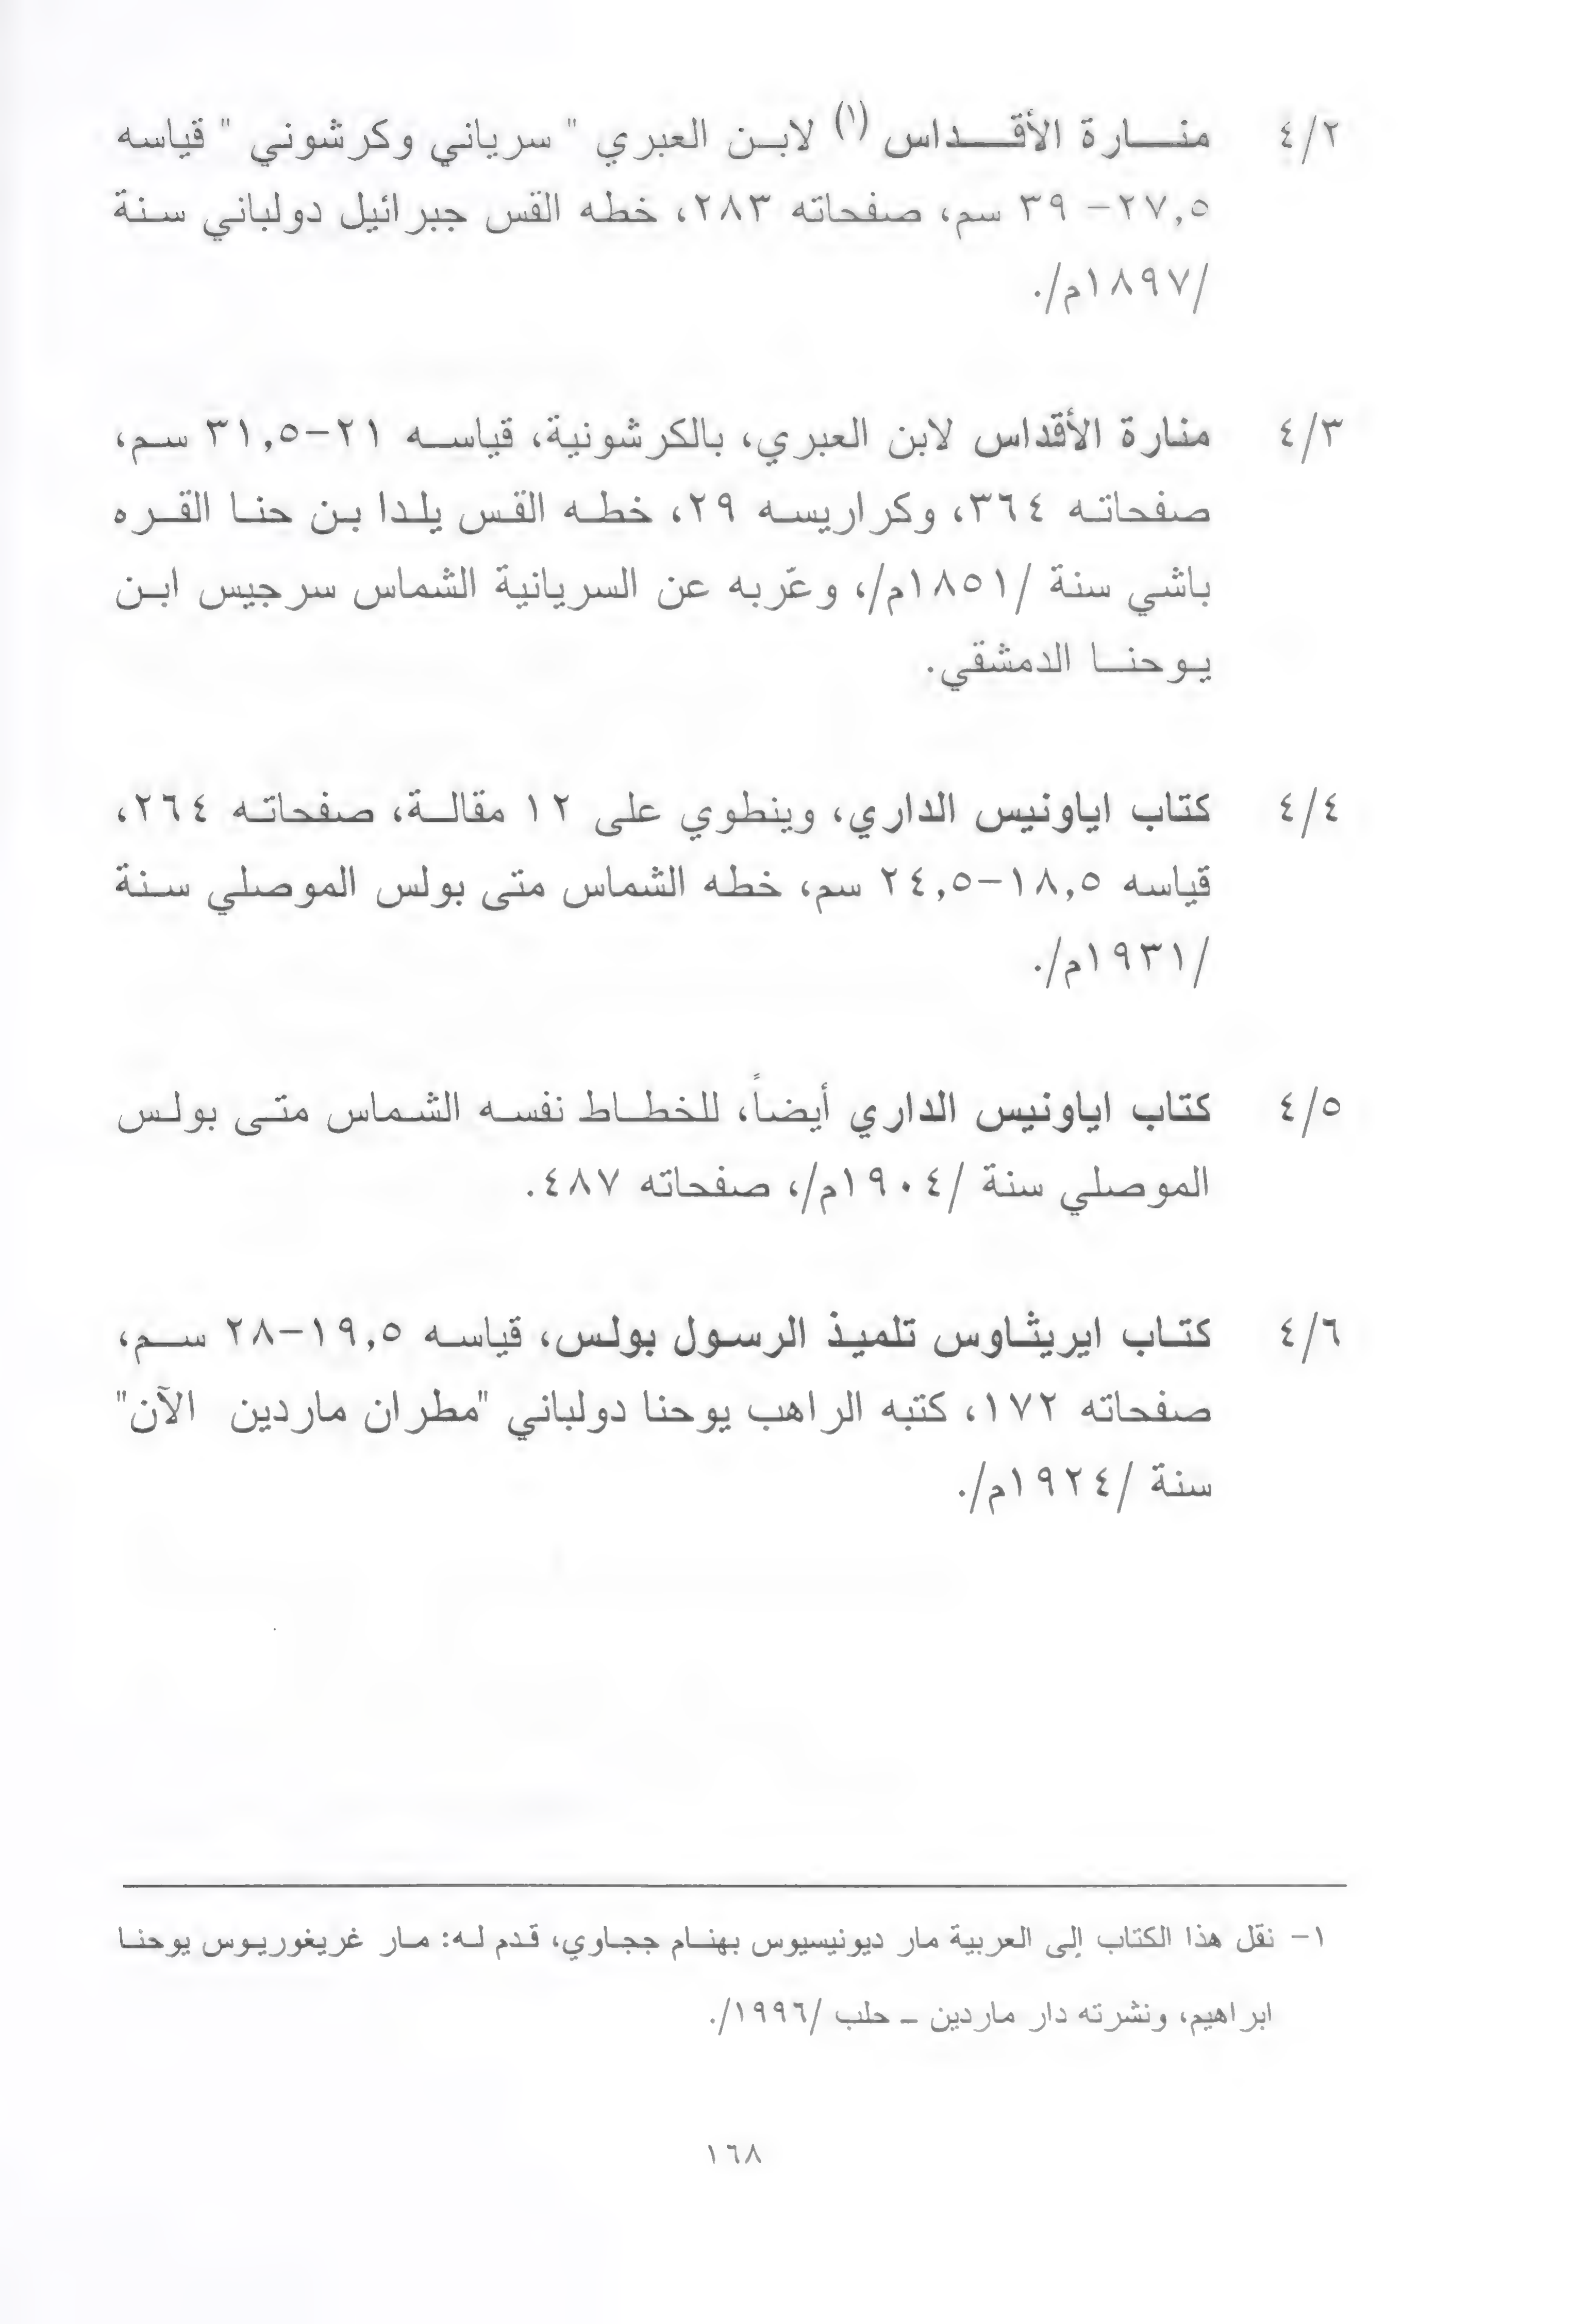 ٤/٢ منارة الأقداس (١) لابن العبري " سرياني وكرشوني " قياسه
٢٧,٥– ٣٩ سم، صفحاته ٢٨٣، خطه القس جبرائيل دولباني سنة
/١٨٩٧م/.
٤/٣ منارة الأقداس لابن العبري، بالكرشونية، قياسه ٢١–٣١,٥ سم،
صفحاته ٣٦٤، وكراريسه ٢٩، خطه القس يلدا بن حنا القره
باشي سنة /١٨٥١م/، وعرّبه عن السريانية الشماس سرجيس ابن
يوحنا الدمشقي.
٤/٤ كتاب اياونيس الداري، وينطوي على ١٢ مقالة، صفحاته ٢٦٤،
قياسه ١٨,٥–٢٤,٥ سم، خطه الشماس متى بولس الموصلي سنة
/١٩٣١م/.
٤/٥ كتاب اياونيس الداري أيضاً، للخطاط نفسه الشماس متى بولس
الموصلي سنة /١٩٠٤م/، صفحاته ٤٨٧.
٤/٦ كتاب ايريثاوس تلميذ الرسول بولس، قياسه ١٩,٥–٢٨ سم،
صفحاته ١٧٢، كتبه الراهب يوحنا دولباني "مطران ماردين الآن"
سنة /١٩٢٤م/.
١– نقل هذا الكتاب إلى العربية مار ديونيسيوس بهنام ججاوي، قدم له: مار غريغوريوس يوحنا
ابراهيم، ونشرته دار ماردين – حلب /١٩٩٦/.
١٦٨